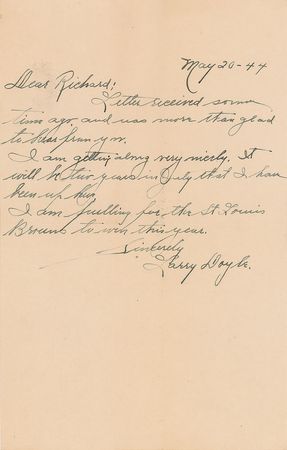 May 20-44
Dear Richard:
Letter received some
time ago, and was more than glad
to hear from you.
I am getting along very nicely. It
will be two years in July that I have
been up here
I am pulling for the St. Louis
Browns to win this year.
Sincerely
Larry Doyle.